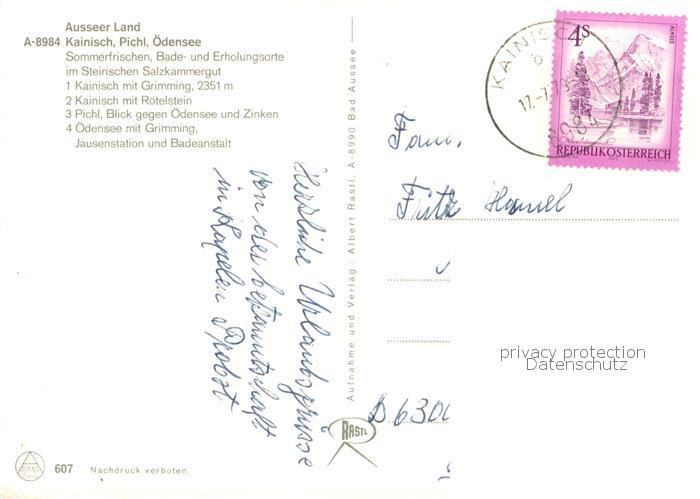 Ausseer Land
A-8984 Kainisch, Pichl, Ödensee
Sommerfrischen, Bade- und Erholungsorte
im Steirischen Salzkammergut
1 Kainisch mit Grimming, 2351 m
2 Kainisch mit Rötelstein
3 Pichl, Blick gegen Ödensee und Zinken
4 Ödensee mit Grimming,
Jausenstation und Badeanstalt
Herzliche Urlaubsgrüsse
von der bekanntschaft
in Kapelen Probst
Aufnahme und Verlag: Albert Rastl, A-8990 Bad Aussee
RASTL
KAINISCH
17.-7.7
8984
4S
ALMSEE
REPUBLIK ÖSTERREICH
Fam.
Fritz Hamel
D 630
privacy protection
Datenschutz
607 Nachdruck verboten.